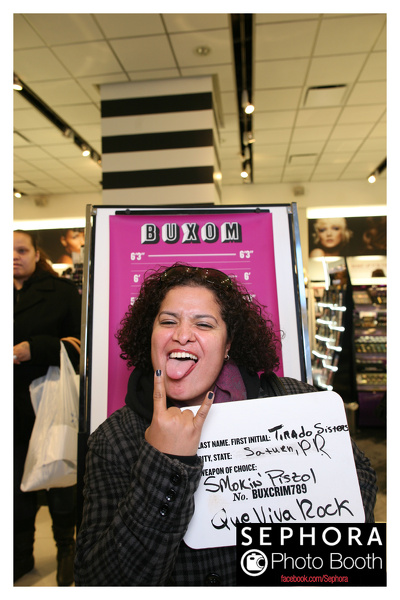 BUXOM
6'3" 6'3"
6' 6'
LAST NAME. FIRST INITIAL: Tirado Sisters
CITY, STATE: Saturn, PR
WEAPON OF CHOICE:
Smokin' Pistol
No. BUXCRIM789
Que Viva Rock
SEPHORA
Photo Booth
facebook.com/Sephora